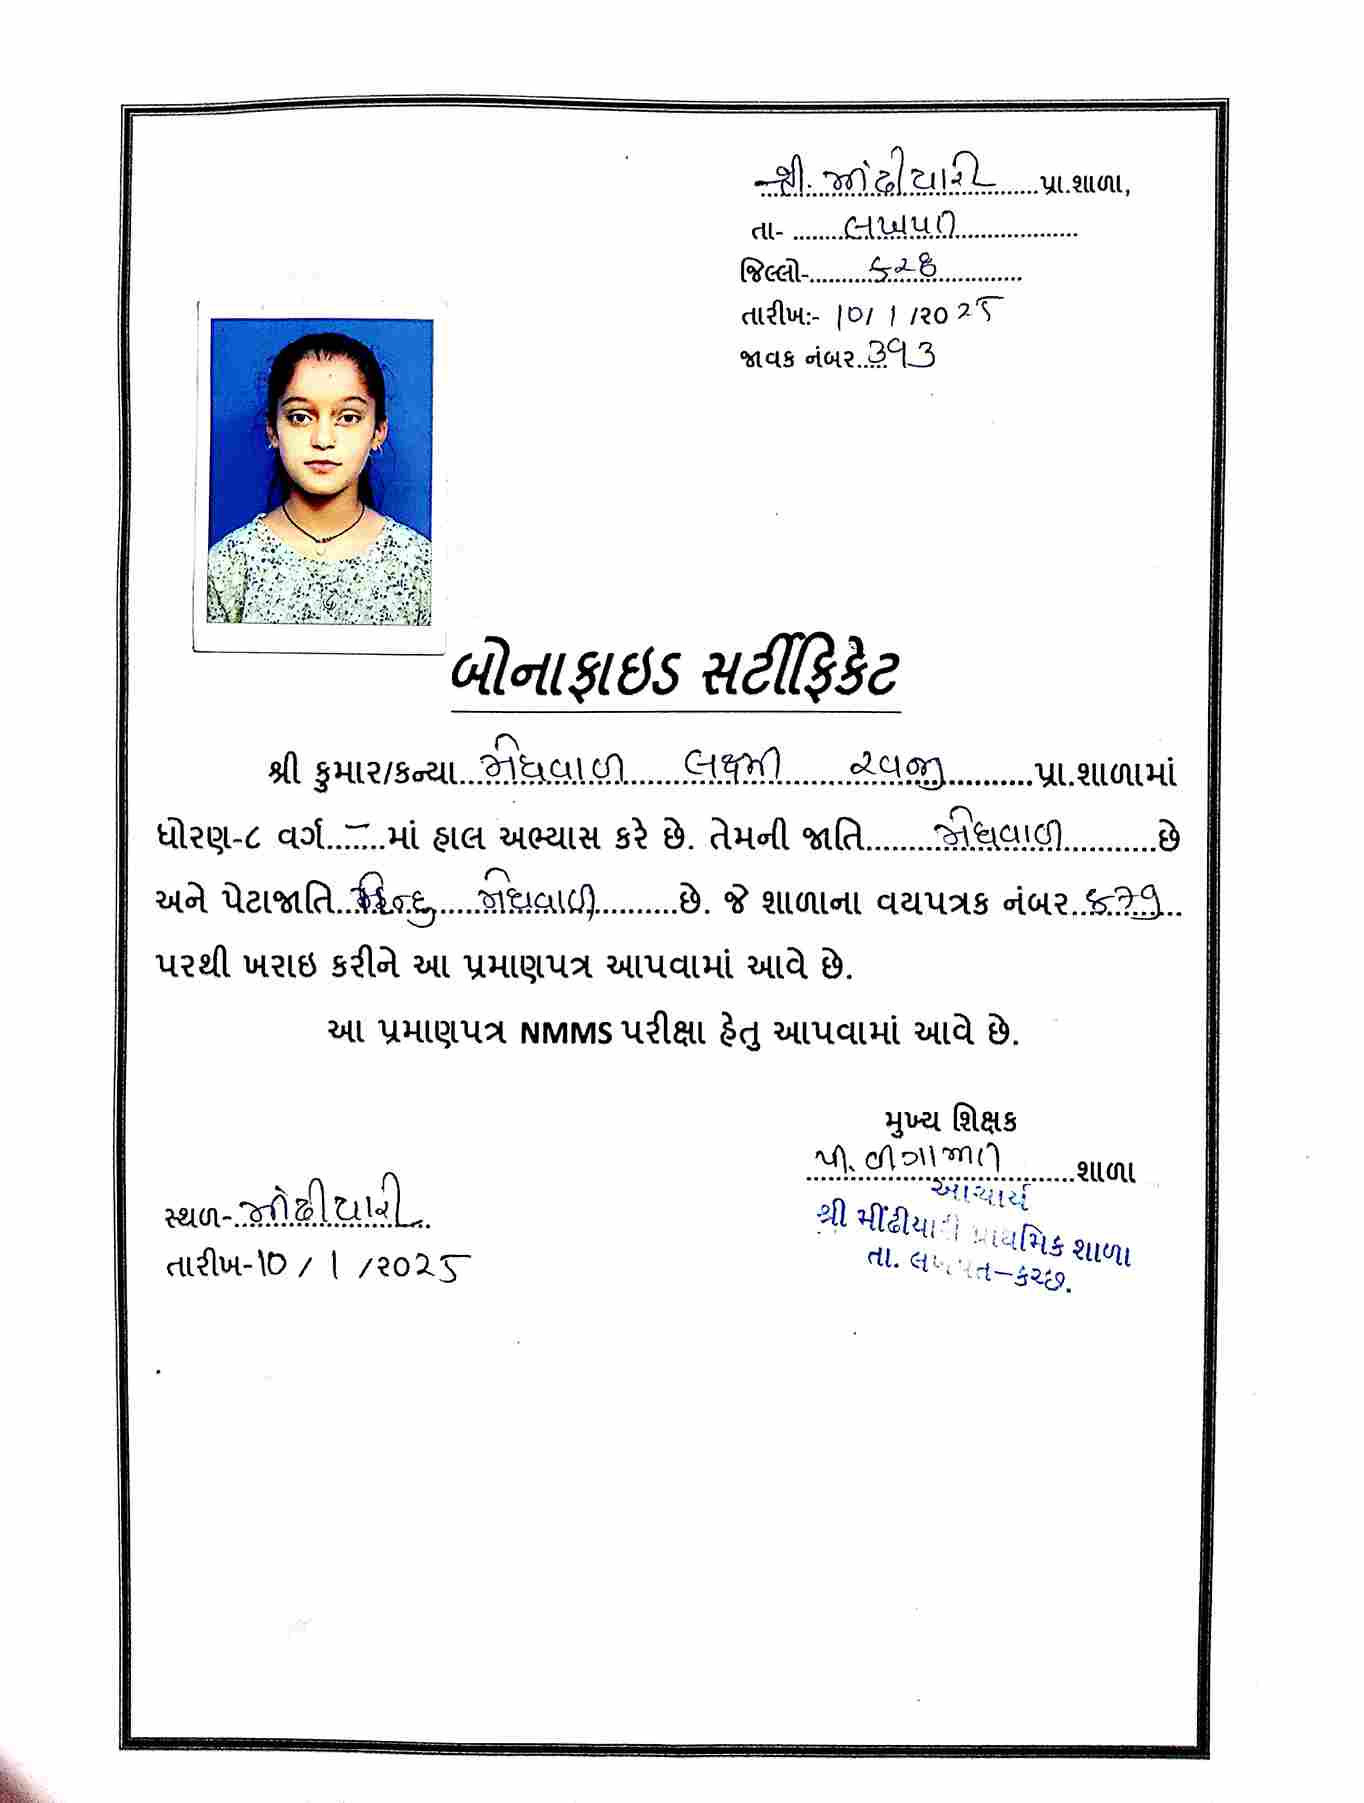 શ્રી. મીંઢીયારી પ્રા.શાળા,
તા- લખપત
જિલ્લો- કચ્છ
તારીખ:- 10/ 1 /૨૦૨૫
જાવક નંબર..393
બોનાફાઇડ સર્ટીફિકેટ
શ્રી કુમાર/કન્યા મેઘવાળ લક્ષ્મી રવજી પ્રા.શાળામાં
ધોરણ-૮ વર્ગ.......માં હાલ અભ્યાસ કરે છે. તેમની જાતિ મેઘવાળ છે
અને પેટાજાતિ હિન્દુ મેઘવાળ છે. જે શાળાના વયપત્રક નંબર
પરથી ખરાઇ કરીને આ પ્રમાણપત્ર આપવામાં આવે છે.
આ પ્રમાણપત્ર NMMS પરીક્ષા હેતુ આપવામાં આવે છે.
મુખ્ય શિક્ષક
શાળા
આચાર્ય
શ્રી મીંઢીયારી પ્રાથમિક શાળા
તા. લખપત-કચ્છ.
સ્થળ- મીંઢીયારી
તારીખ-10 / 1 /૨૦૨૫